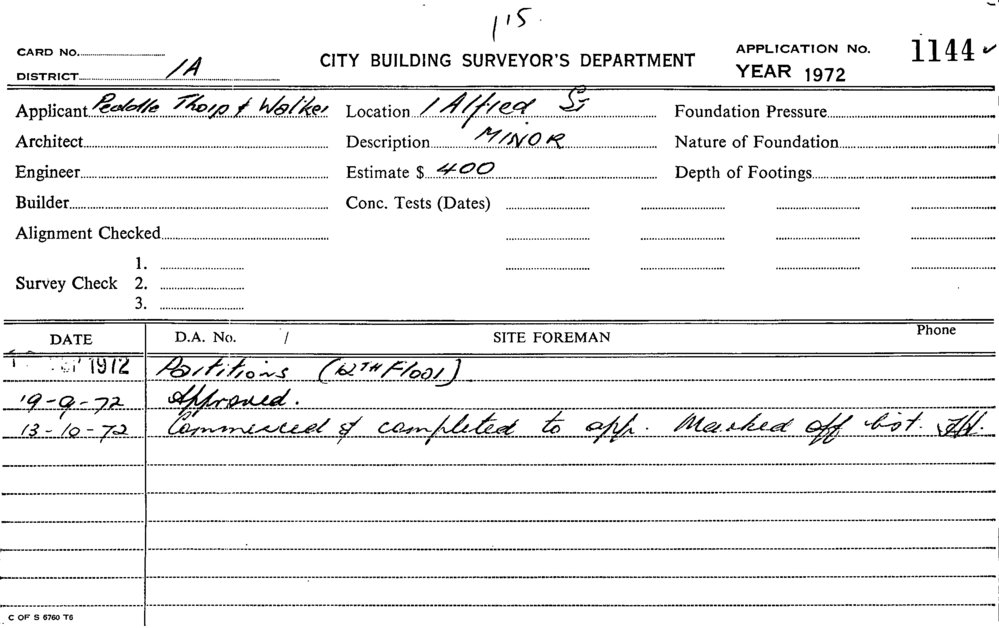 115.
CARD NO.
DISTRICT 1A
CITY BUILDING SURVEYOR'S DEPARTMENT
APPLICATION No. 1144 ✓
YEAR 1972
Applicant Peddle Thorp & Walker Location 1 Alfred St Foundation Pressure
Architect Description MINOR Nature of Foundation
Engineer Estimate $ 400 Depth of Footings
Builder Conc. Tests (Dates)
Alignment Checked
1.
Survey Check 2.
3.
DATE D.A. No. / SITE FOREMAN Phone
1972 Partitions (12TH Floor)
19-9-72 Approved.
13-10-72 Commenced & completed to app. Marked off list.
C OF S 6760 T6